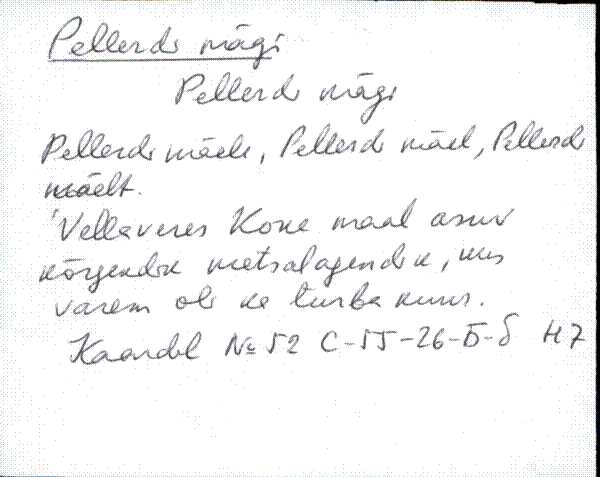 Pellerdi mägi
Pellerdi mägi
Pellerdi mäele, Pellerdi mäel, Pellerdi
mäelt.
Vellaveres Kone maal asuv
kõrgendik metsalagendik, kus
varem oli ka turba kuur.
Kaardil № 52 С-55-26-Б-б Н7